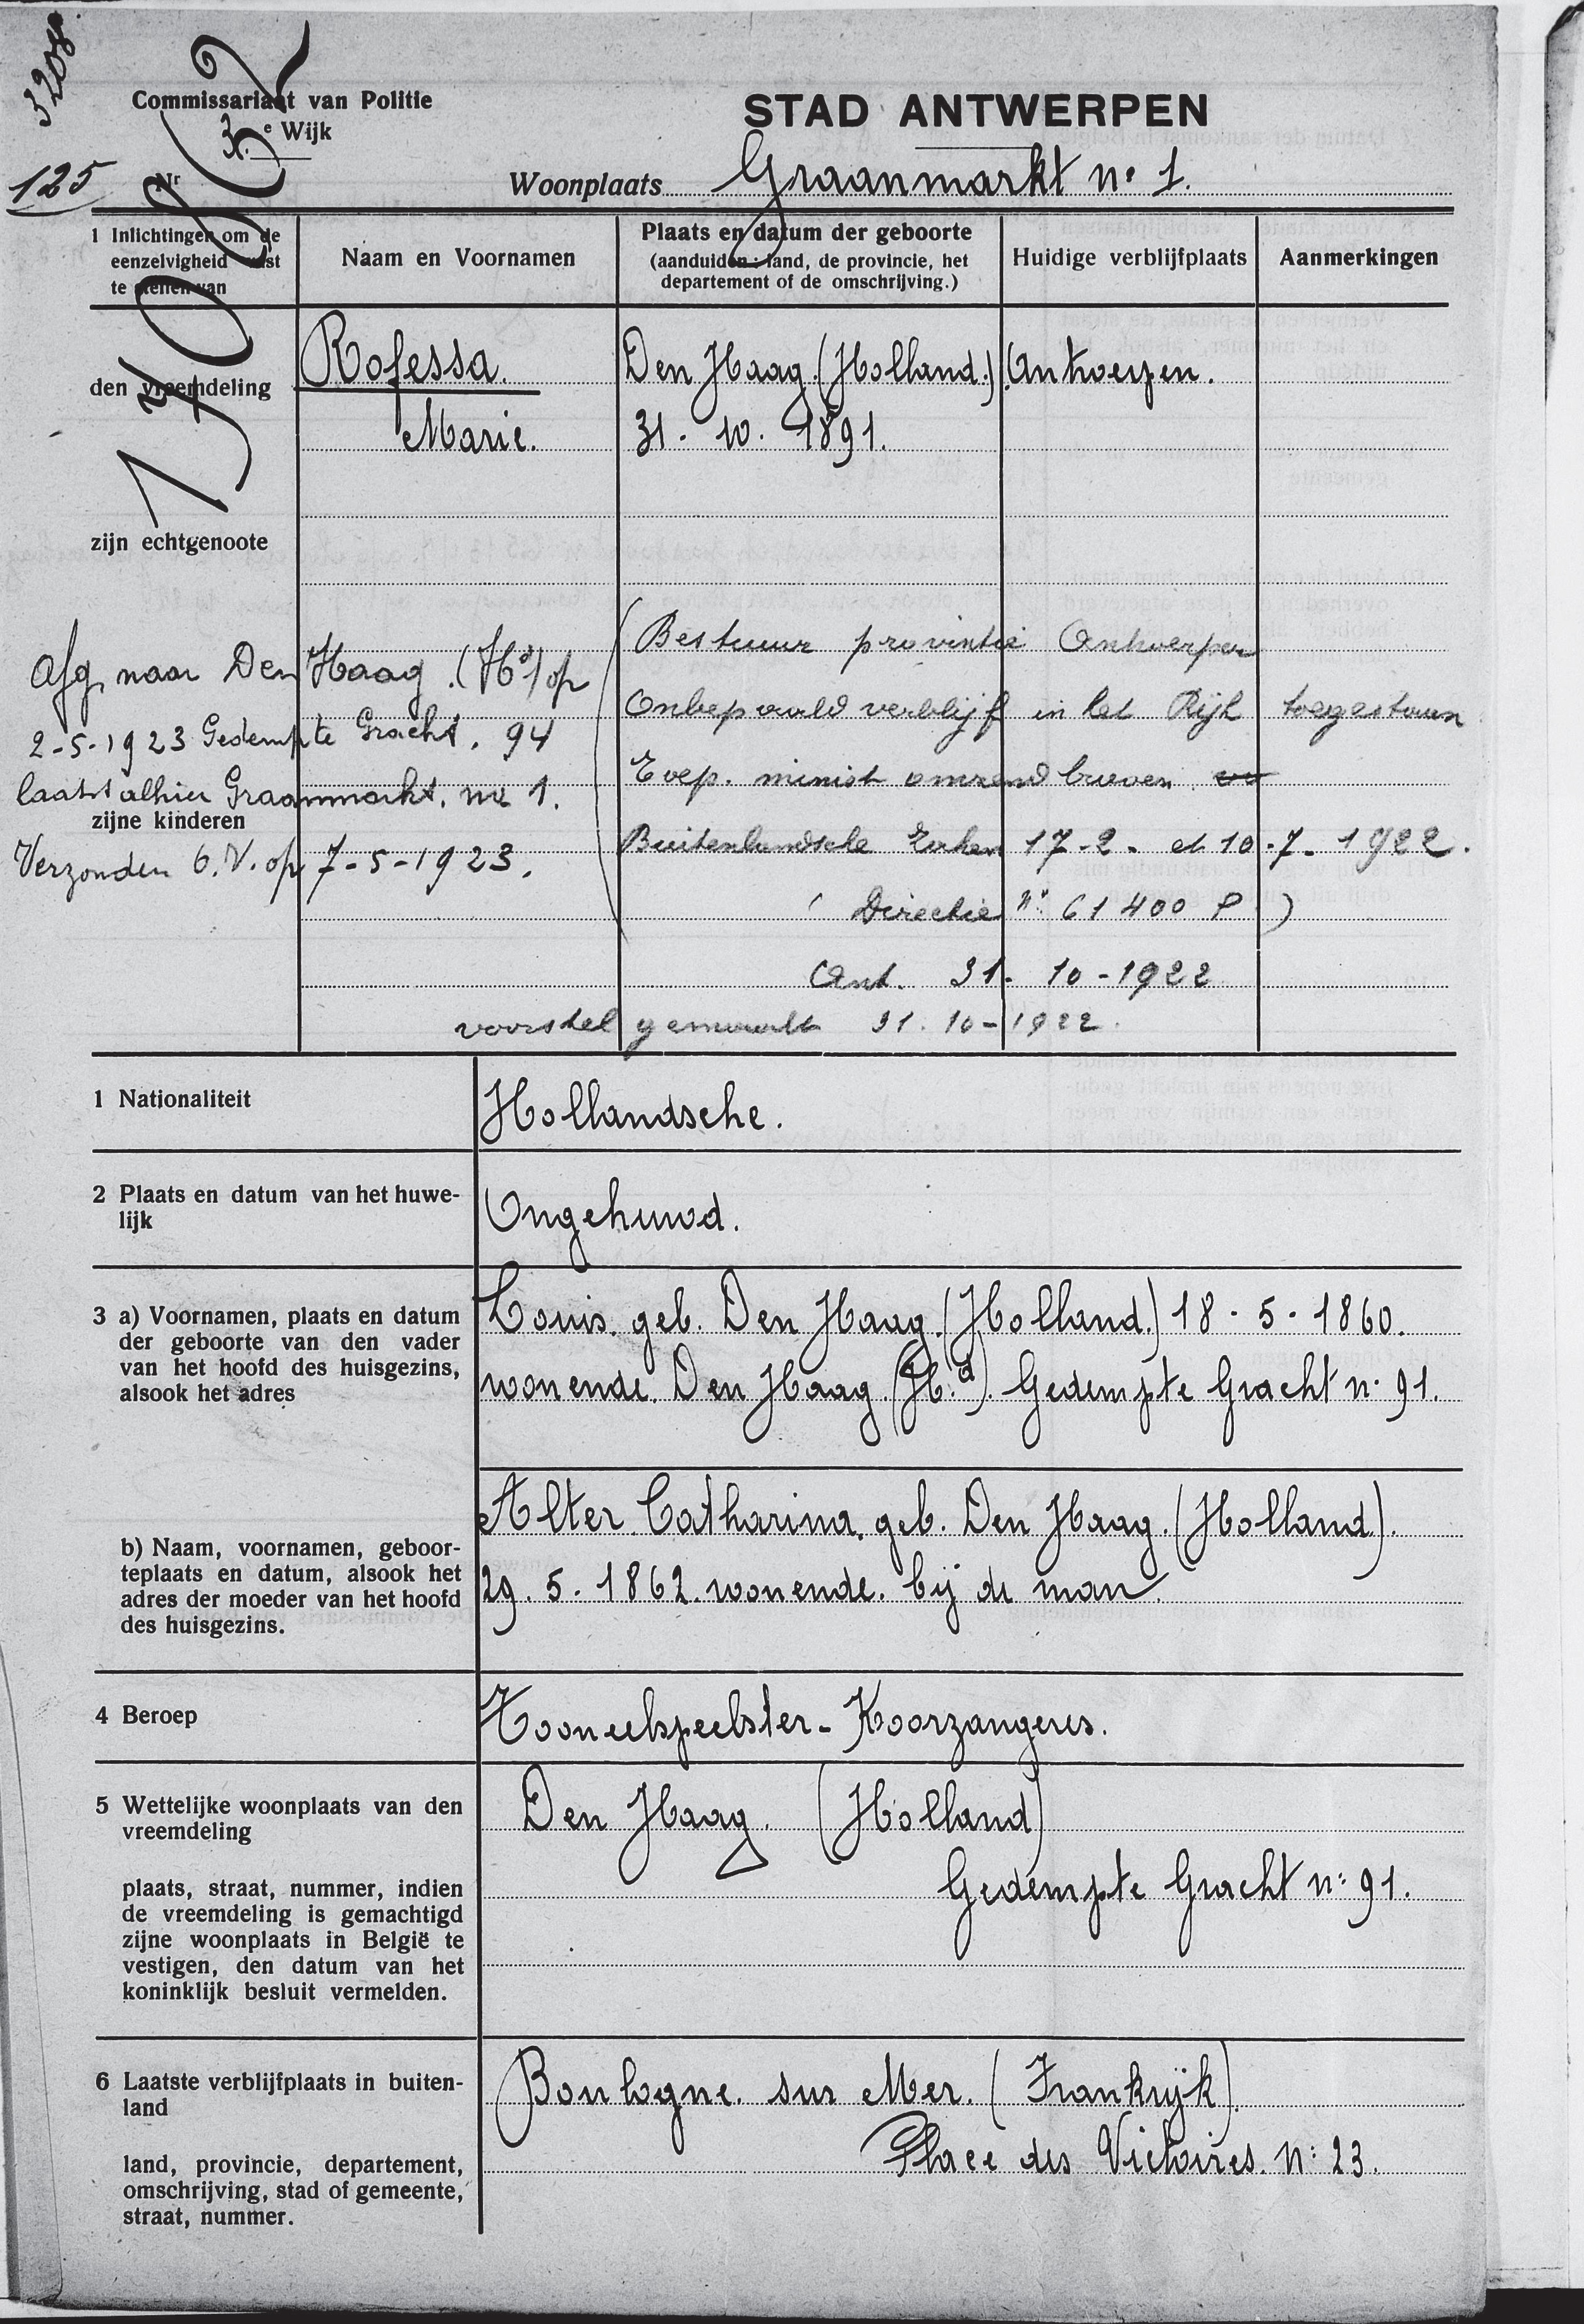 3208
Commissariaat van Politie
3.e Wijk
STAD ANTWERPEN
125
Nr
Woonplaats Graanmarkt no 1.
1 Inlichtingen om de
eenzelvigheid vast
te stellen van
Naam en Voornamen
Plaats en datum der geboorte
(aanduiden : land, de provincie, het
departement of de omschrijving.)
Huidige verblijfplaats
Aanmerkingen
den vreemdeling
Rofessa. Den Haag. (Holland.) Antwerpen.
Marie. 31. 10. 1891.
zijn echtgenoote
Afg. naar Den Haag. (Hd) op
2-5-1923 Gedempte Gracht. 94
laatst alhier Graanmarkt. no 1.
zijne kinderen
Verzonden 6.V. op 7-5-1923.
Bestuur provintie Antwerpen
Onbepaald verblijf in het Rijk toegestaan
Toep. minist omzend brieven
Buitenlandsche Zaken 17-2- et 10-7-1922.
( Directie no 61400 P )
Ant. 31-10-1922
voorstel gemaakt 31.10-1922.
1 Nationaliteit
Hollandsche.
2 Plaats en datum van het huwe-
lijk
Ongehuwd.
3 a) Voornamen, plaats en datum
der geboorte van den vader
van het hoofd des huisgezins,
alsook het adres
Louis. geb. Den Haag. (Holland.) 18-5-1860.
wonende. Den Haag (H.d). Gedempte Gracht no 91.
b) Naam, voornamen, geboor-
teplaats en datum, alsook het
adres der moeder van het hoofd
des huisgezins.
Alter. Catharina. geb. Den Haag. (Holland).
29.5.1862. wonende. bij de man.
4 Beroep
Tooneelspeelster - Koorzangeres.
5 Wettelijke woonplaats van den
vreemdeling
plaats, straat, nummer, indien
de vreemdeling is gemachtigd
zijne woonplaats in België te
vestigen, den datum van het
koninklijk besluit vermelden.
Den Haag. (Holland)
Gedempte Gracht no: 91.
6 Laatste verblijfplaats in buiten-
land
land, provincie, departement,
omschrijving, stad of gemeente,
straat, nummer.
Boulogne. sur Mer. (Frankrijk).
Place des Victoires. No: 23.